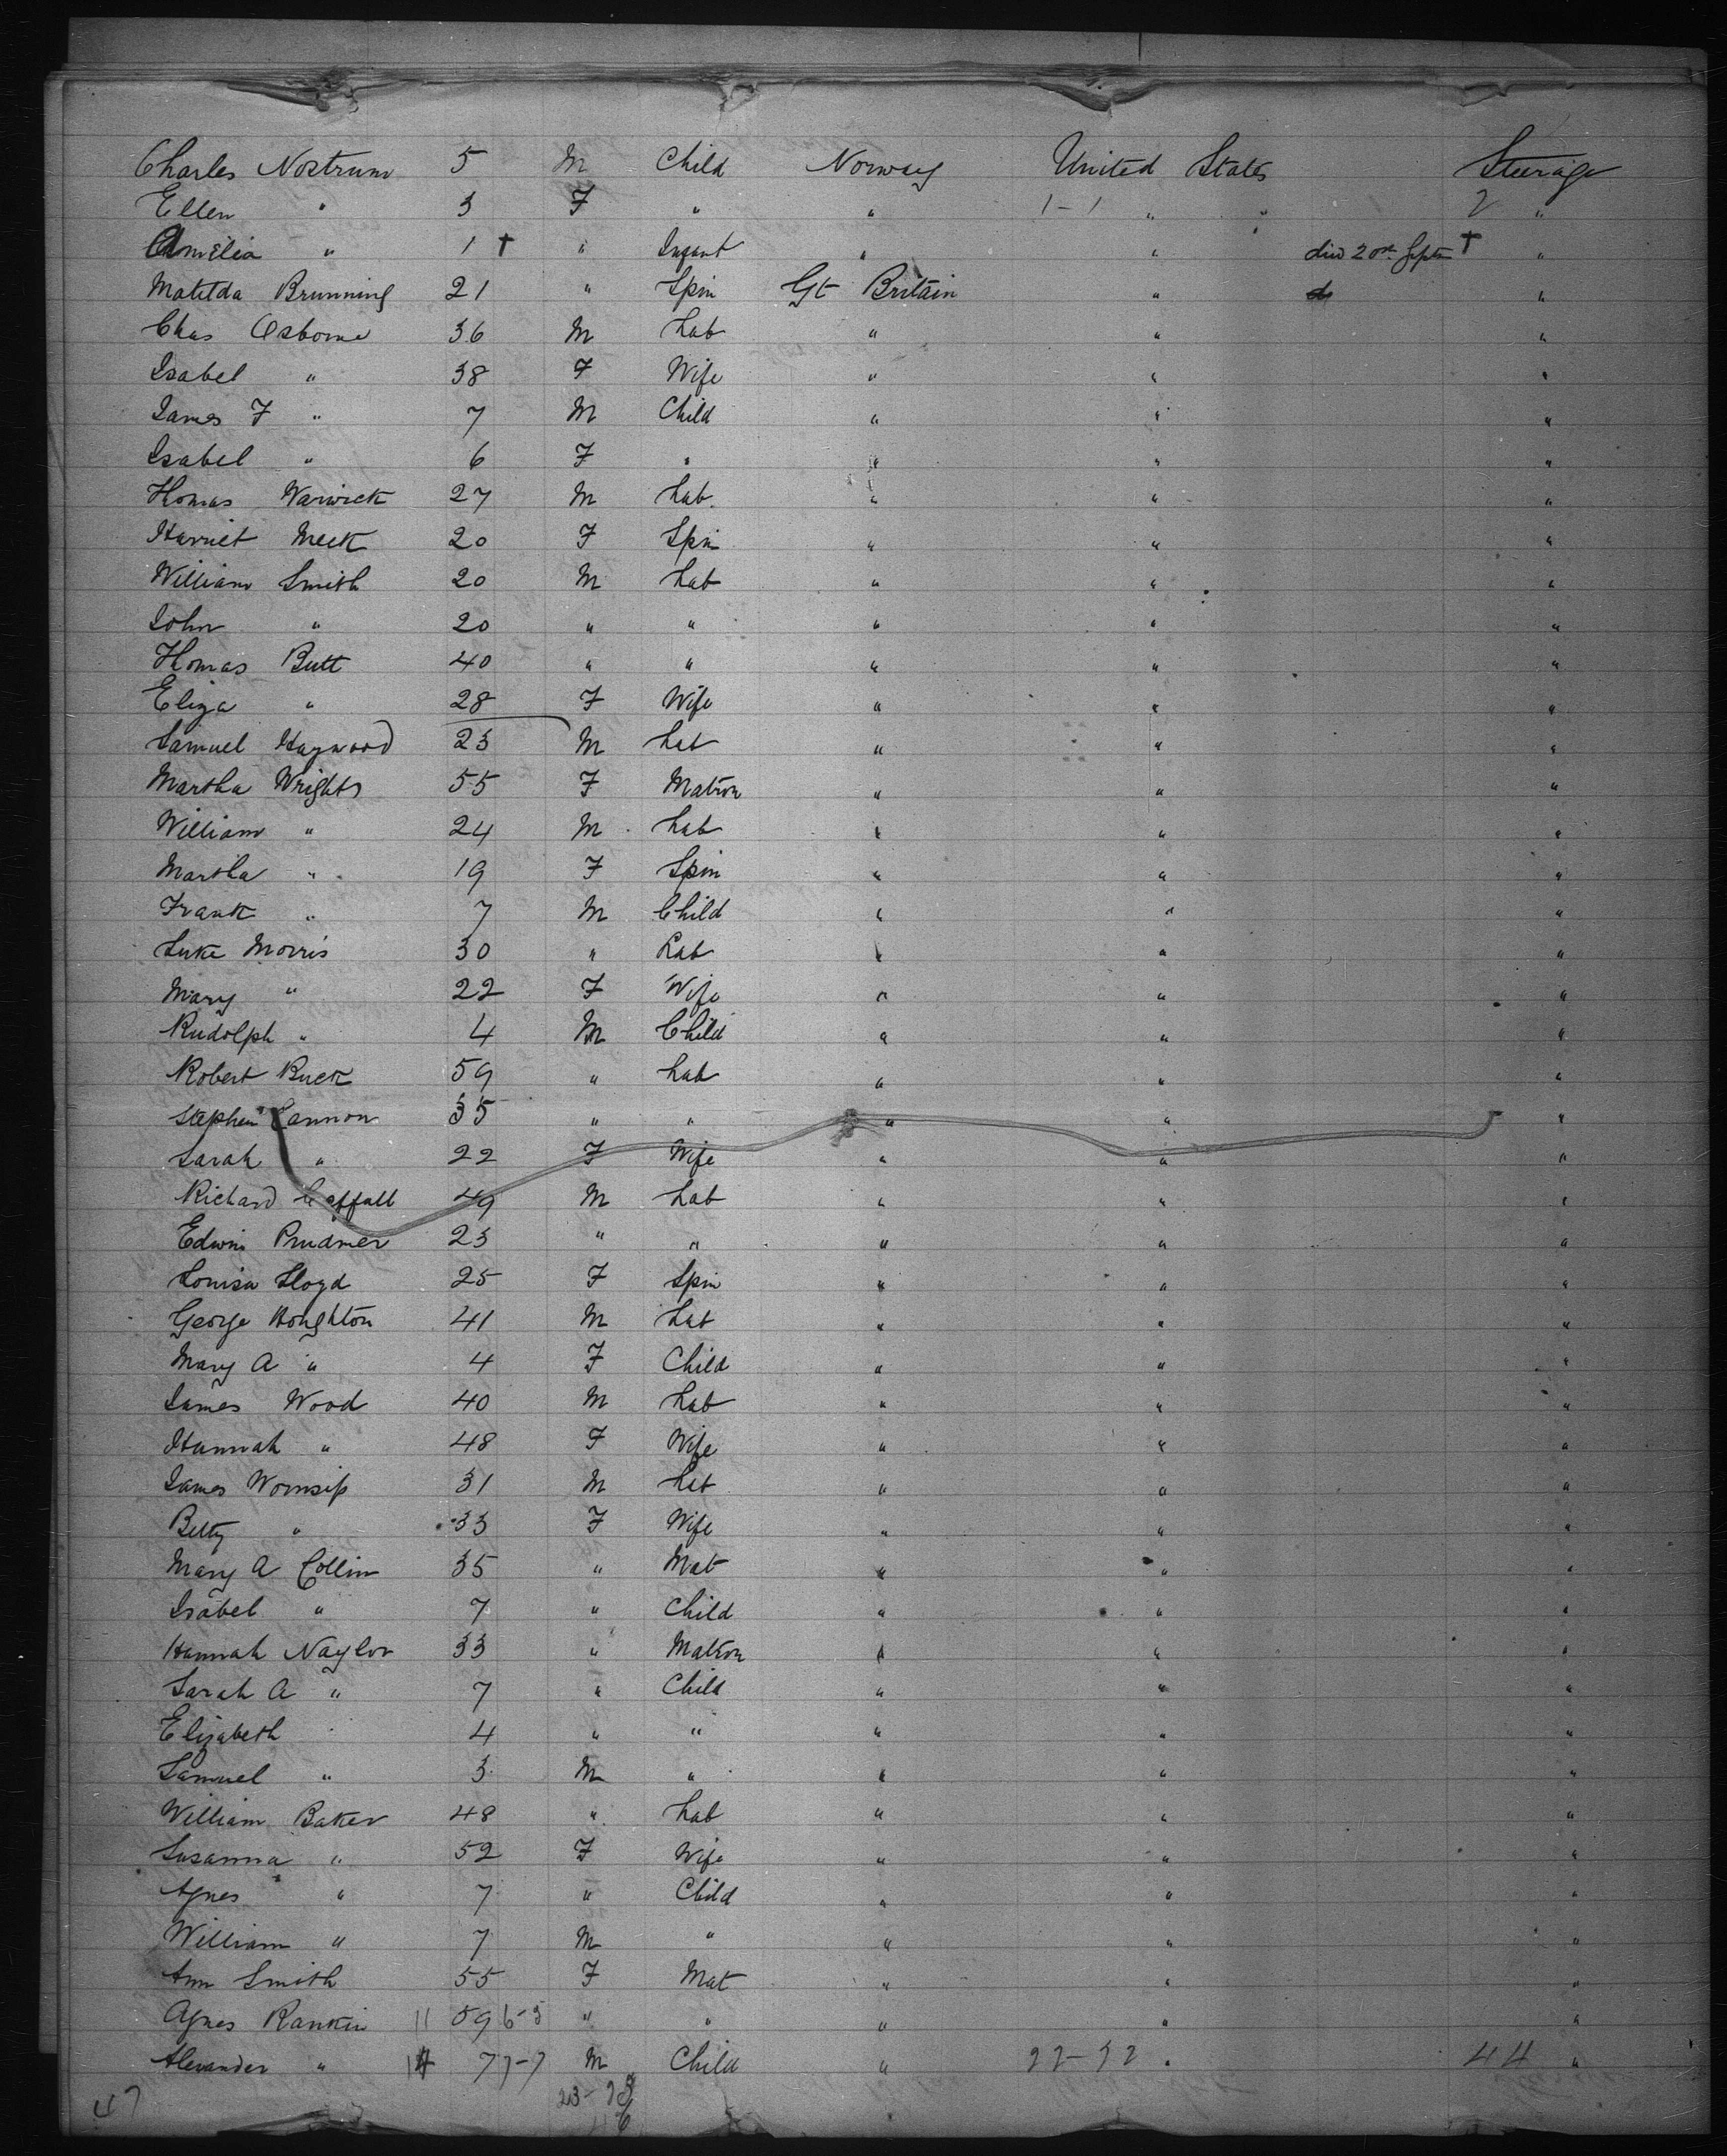 Charles Nostrum 5 M Child Norway United States Steerage
Ellen " 3 F " " 1-1 " " 2 "
Amelia " 1 † " Infant " " died 20th Septr † "
Matilda Brunning 21 " Spin Gt Britain " "
Chas Osborne 36 M Lab " " "
Isabel " 38 F Wife " " "
James F " 7 M Child " " "
Isabel " 6 F " " " "
Thomas Warwick 27 M Lab. " " "
Harriet Meek 20 F Spin " " "
William Smith 20 M Lab " " "
John " 20 " " " " "
Thomas Butt 40 " " " " "
Eliza " 28 F Wife " " "
Samuel Haywood 23 M Lab " " "
Martha Wrights 55 F Matron " " "
William " 24 M Lab " " "
Martha " 19 F Spin " " "
Frank " 7 M Child " " "
Luke Morris 30 " Lab " " "
Mary " 22 F Wife " " "
Rudolph " 4 M Child " " "
Robert Buck 59 " Lab " " "
Stephen Cannon 35 " " " " "
Sarah " 22 F Wife " " "
Richard Caffall 49 M Lab " " "
Edwin Prudmer 23 " " " " "
Louisa Lloyd 25 F Spin " " "
George Houghton 41 M Lab " " "
Mary A " 4 F Child " " "
James Wood 40 M Lab " " "
Hannah " 48 F Wife " " "
James Wornsip 31 M Lab " " "
Betty " 33 F Wife " " "
Mary A Collin 35 " Mat " " "
Isabel " 7 " Child " " "
Hannah Naylor 33 " Matron " " "
Sarah A " 7 " Child " " "
Elizabeth 4 " " " " "
Samuel " 3 M " " " "
William Baker 48 " Lab " " "
Susanna " 52 F Wife " " "
Agnes " 7 " Child " " "
William " 7 M " " " "
Ann Smith 55 F Mat " " "
Agnes Rankin 11 59 6-5 " " " " "
Alexander " 7 7-7 M Child " 22-22 " 44 "
47